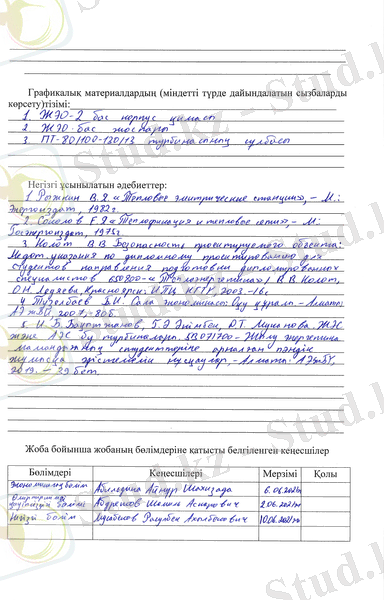 Графикалық материалдардың (міндетті түрде дайындалатын сызбаларды
көрсету)тізімі:
1. ЖЭО-2 бас корпус қимасы
2. ЖЭО бас жоспары
3. ПТ-80/100-130/13 турбинасының сұлбасы
Негізгі ұсынылатын әдебиеттер:
1. Рыжкин В.Я «Тепловые электрические станции», – М.:
Энергоиздат, 1982г.
2. Соколов Е.Я «Теплофикация и тепловые сети», – М.:
Госэнергоиздат, 1975г.
3. Колот В.В Безопасность проектируемого объекта:
Метод. указания по дипломному проектированию для
студентов направления подготовки дипломированных
специалистов 650800 – «Теплоэнергетика» / В.В Колот,
О.Н Ледяева, Красноярск: ИПЦ КГТУ, 2003.-16с
4. Түзелбаев Б.И. Сала экономикасы: Оқу құралы. – Алматы:
АЭжБИ, 2007, - 80б.
5. И.Б. Бахтжанов, ЖЭС
және АЭС бу турбиналары. 5В071700 – Жылу энергетика
мамандығының студенттеріне арналған пәндік
жұмысқа әдістемелік нұсқаулар, – Алматы: АЭжБУ,
2019. – 29 бет.
Жоба бойынша жобаның бөлімдеріне қатысты белгіленген кеңесшілер
Бөлімдері Кеңесшілері Мерзімі Қолы
Экономикалық бөлім Айнур Шахизада 6.06.2021ж
бөлімі Абдрешов Шамиль Аскарович 2.06.2021ж
Негізгі бөлім 10.06.2021ж
Stud.kz